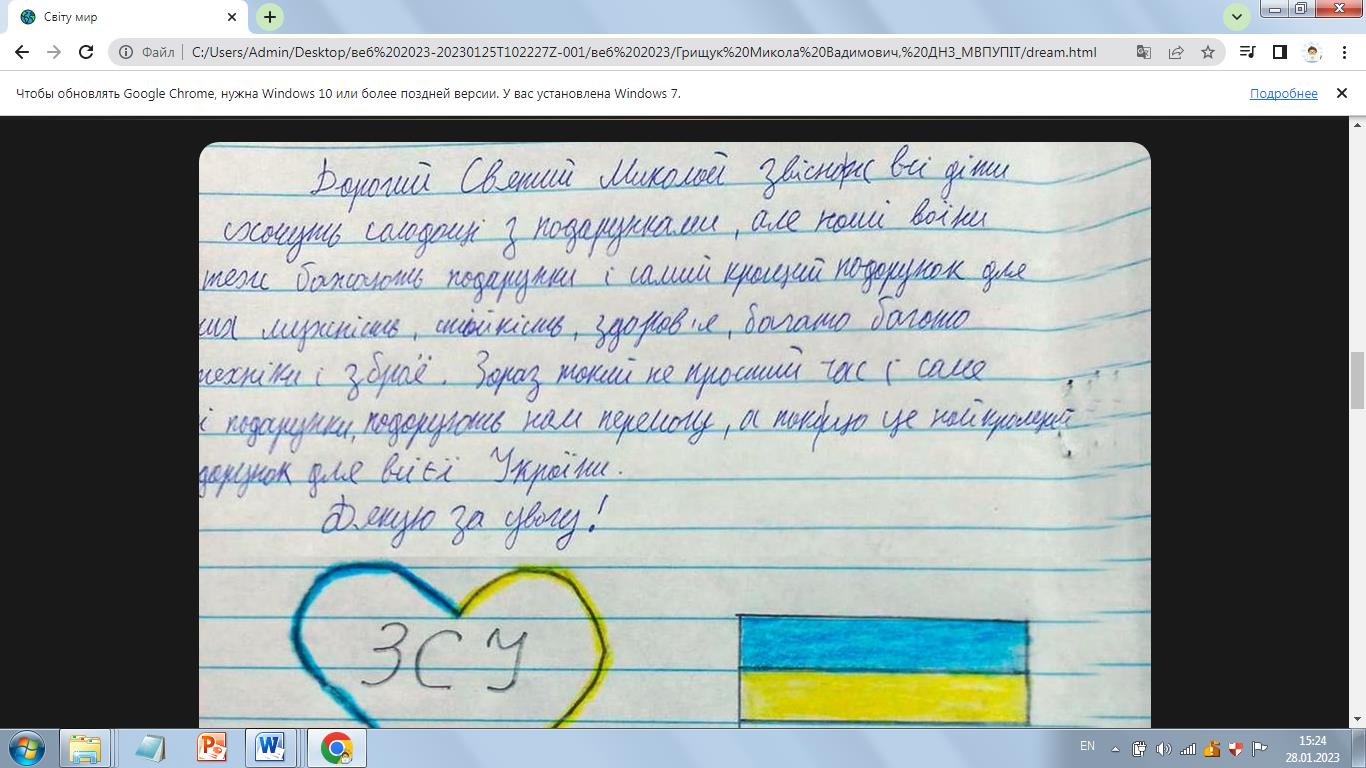 Світу мир
Файл
C:/Users/Admin/Desktop/веб%202023-20230125T102227Z-001/веб%202023/Грищук%20Микола%20Вадимович,%20ДНЗ_МВПУПІТ/dream.html
Чтобы обновлять Google Chrome, нужна Windows 10 или более поздней версии. У вас установлена Windows 7.
Подробнее
Дорогий Святий Миколай звісно ж всі діти
схочуть солодощі з подарунками, але наші воїни
теж бажають подарунки і самий кращий подарунок для
них мужність, стійкість, здоров'я, багато багато
техніки і зброє. Зараз такий не простий час і саме
і подарунки, подарують нам перемогу, а покищо це найкращий
дарунок для всієї України.
Дякую за увагу!
ЗСУ
EN
15:24
28.01.2023